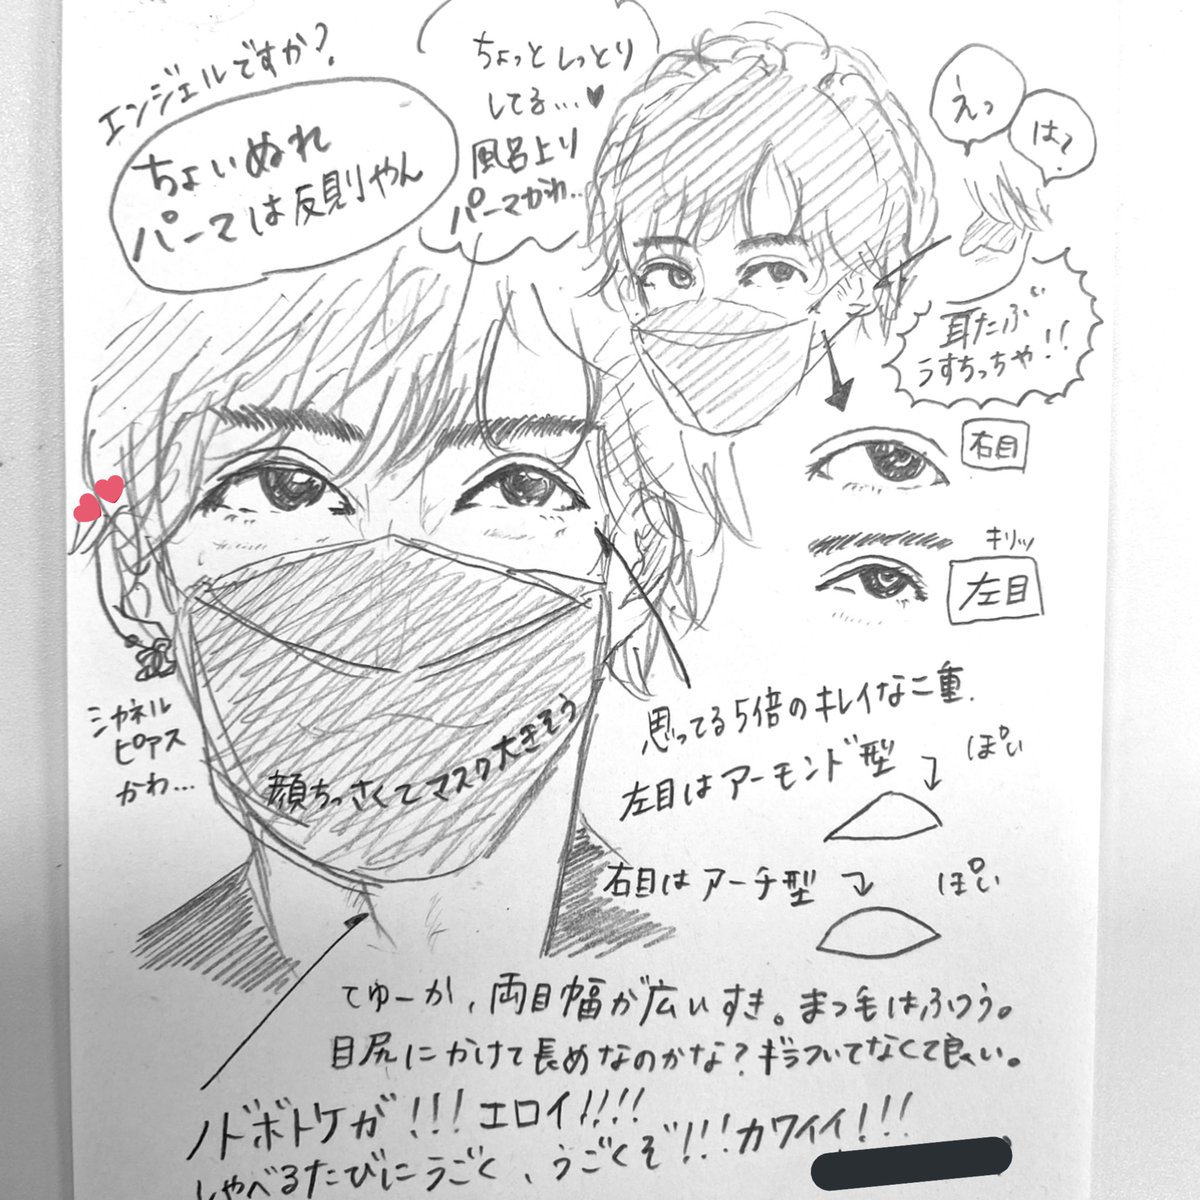 エンジェルですか？
ちょいぬれ
パーマは反則やん
ちょっとしっとり
してる…♥
風呂上り
パーマかわ…
えっ
は？
耳たぶ
うすちっちゃ!!
右目
キリッ
左目
シャネル
ピアス
かわ…
顔ちっさくてマスク大きそう
思ってる5倍のキレイな二重.
左目はアーモンド型 ぽい
右目はアーチ型 ぽい
てゆーか、両目幅が広いすき。まつ毛はふつう。
目尻にかけて長めなのかな？ギラついてなくて良い。
ノドボトケが!!!エロイ!!!!
しゃべるたびにうごく、うごくぞ!!!カワイイ!!!